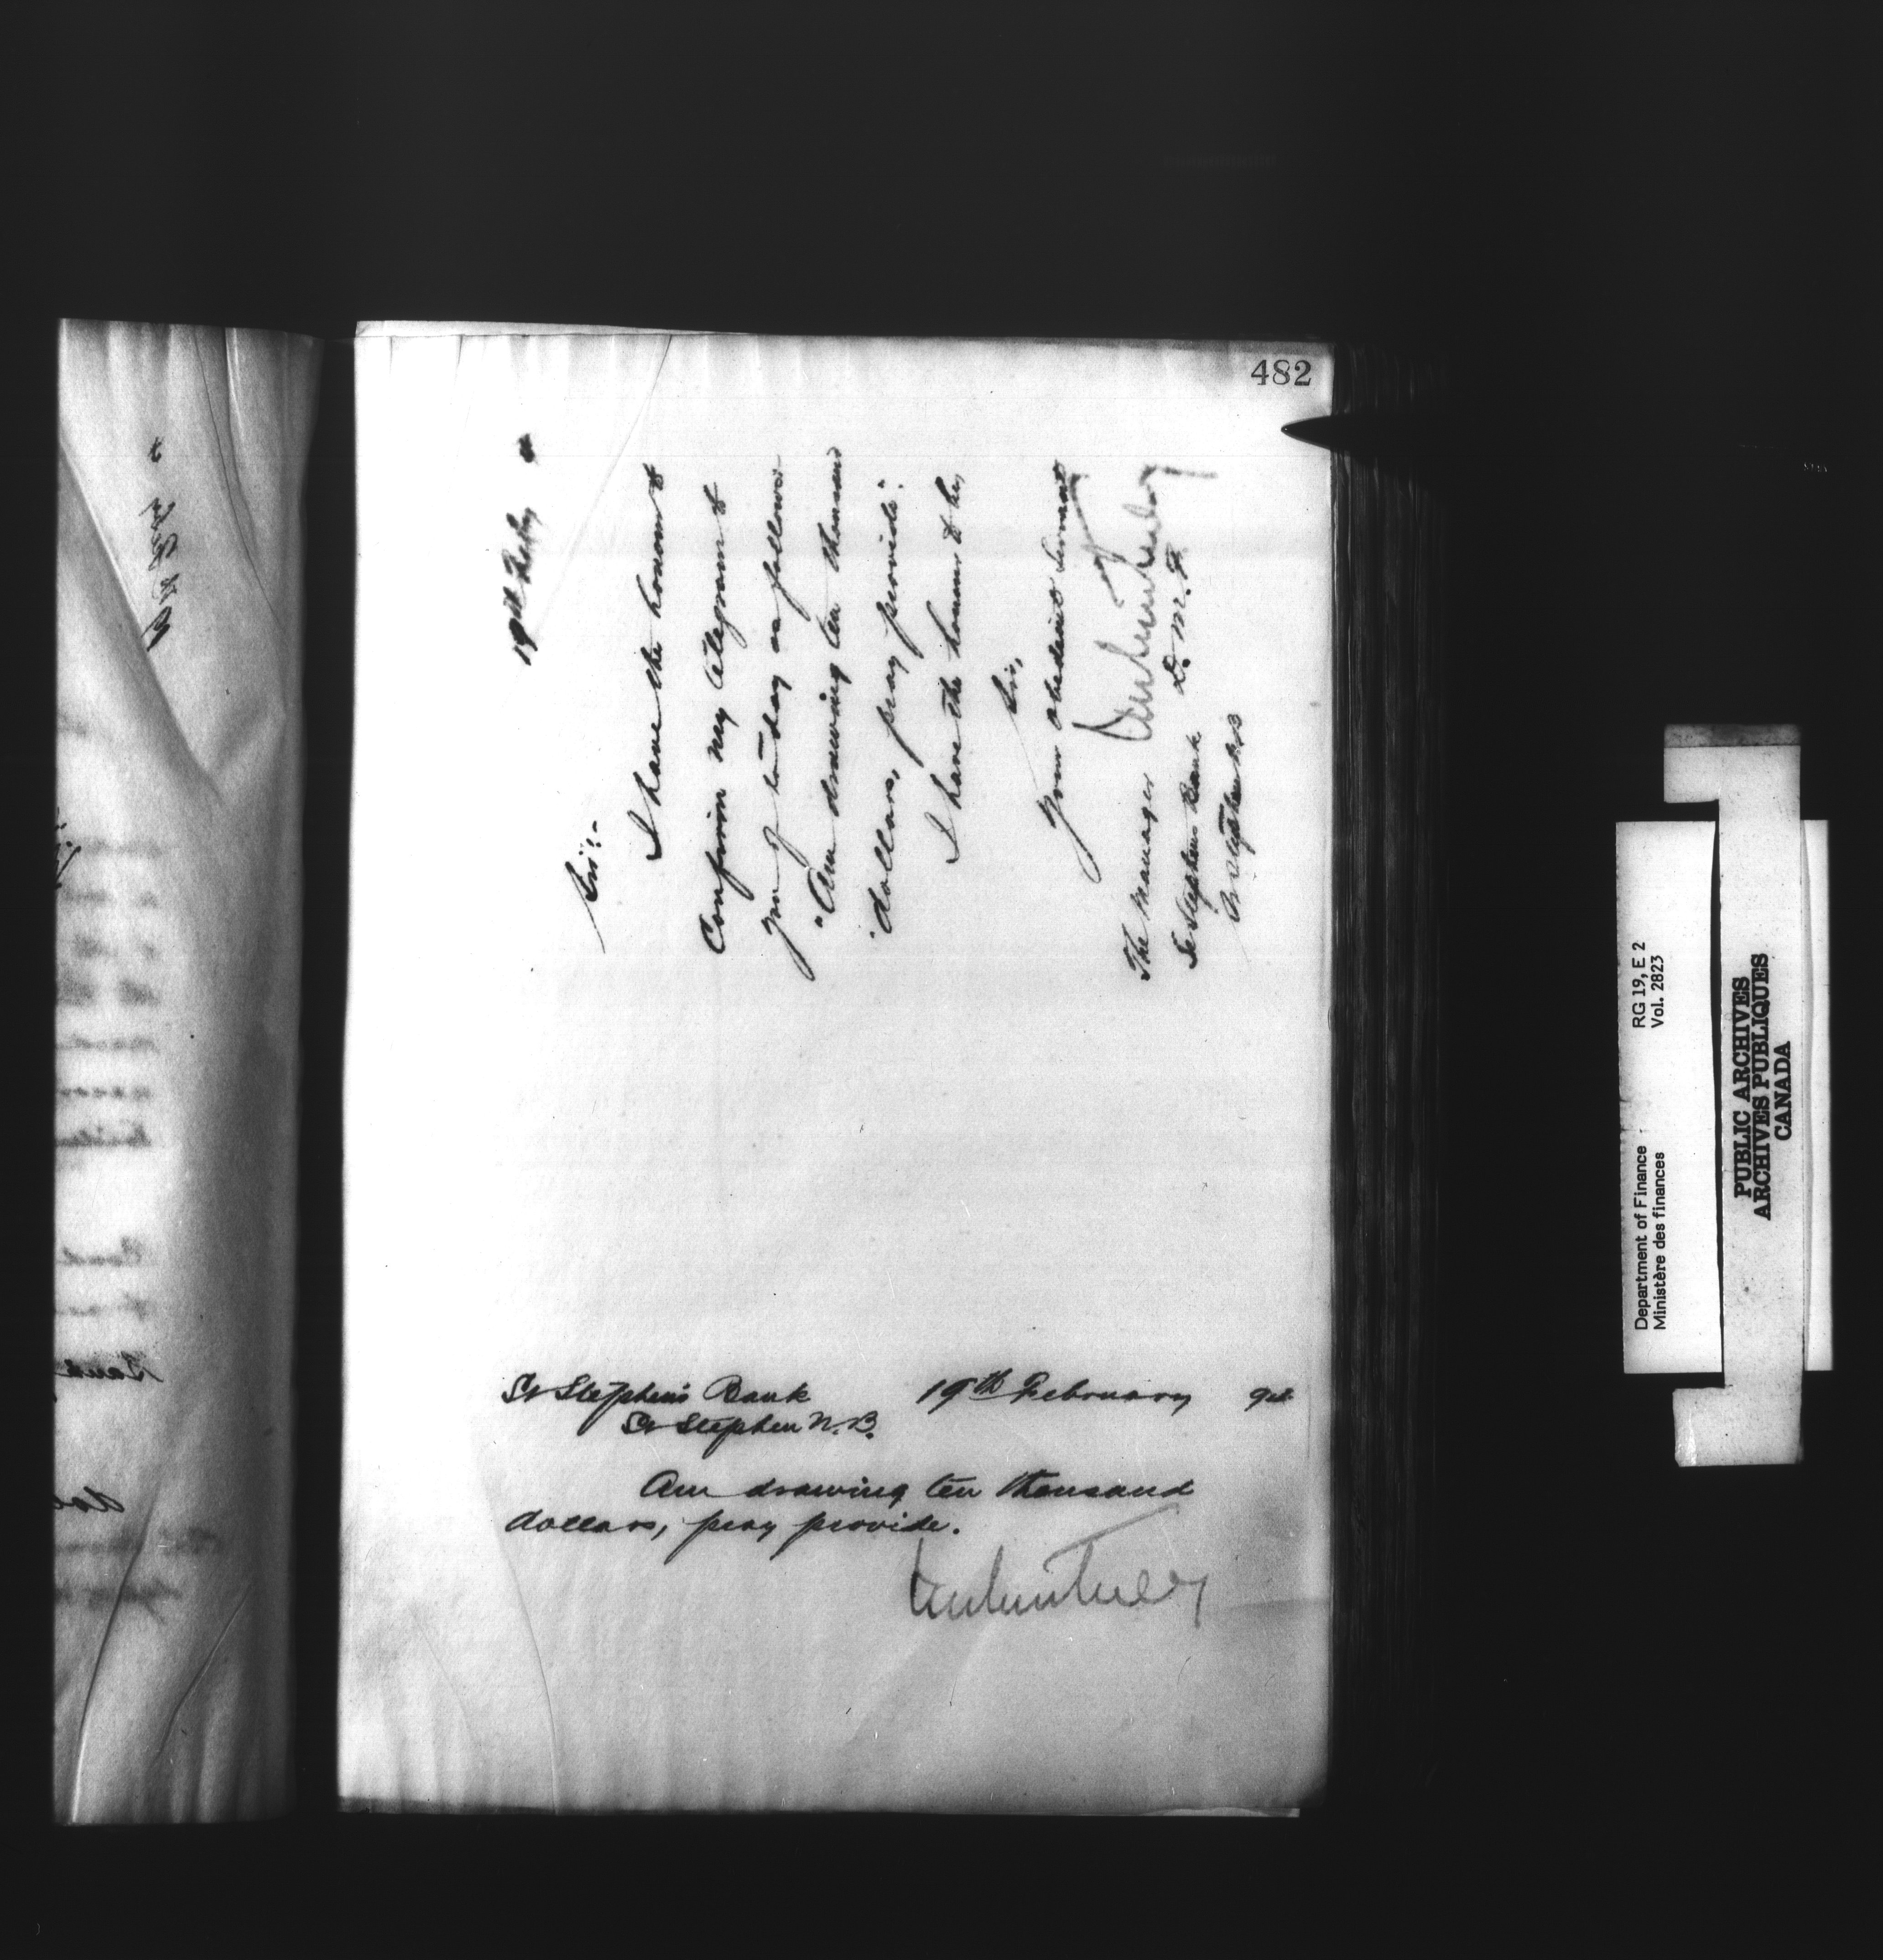 482
19th Feby
Sir:-
I have the honour to
Confirm my telegram to
you of to-day as follows:
"Am drawing ten thousand
"dollars, pray provide."
I have the honour to be,
Sir,
Your obedient servant
D. M. F.
The Manager
St Stephens Bank
St Stephen N.B
St Stephen's Bank 19th February
St Stephen N.B.
Am drawing ten thousand
dollars, pray provide.
Department of Finance RG 19, E 2
Ministère des finances Vol. 2823
PUBLIC ARCHIVES
ARCHIVES PUBLIQUES
CANADA